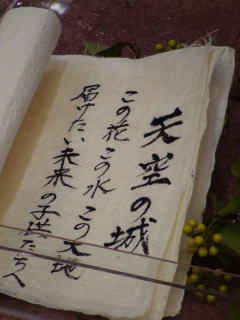 天空の城
この花この水この大地
届けたい未来の子供たちへ